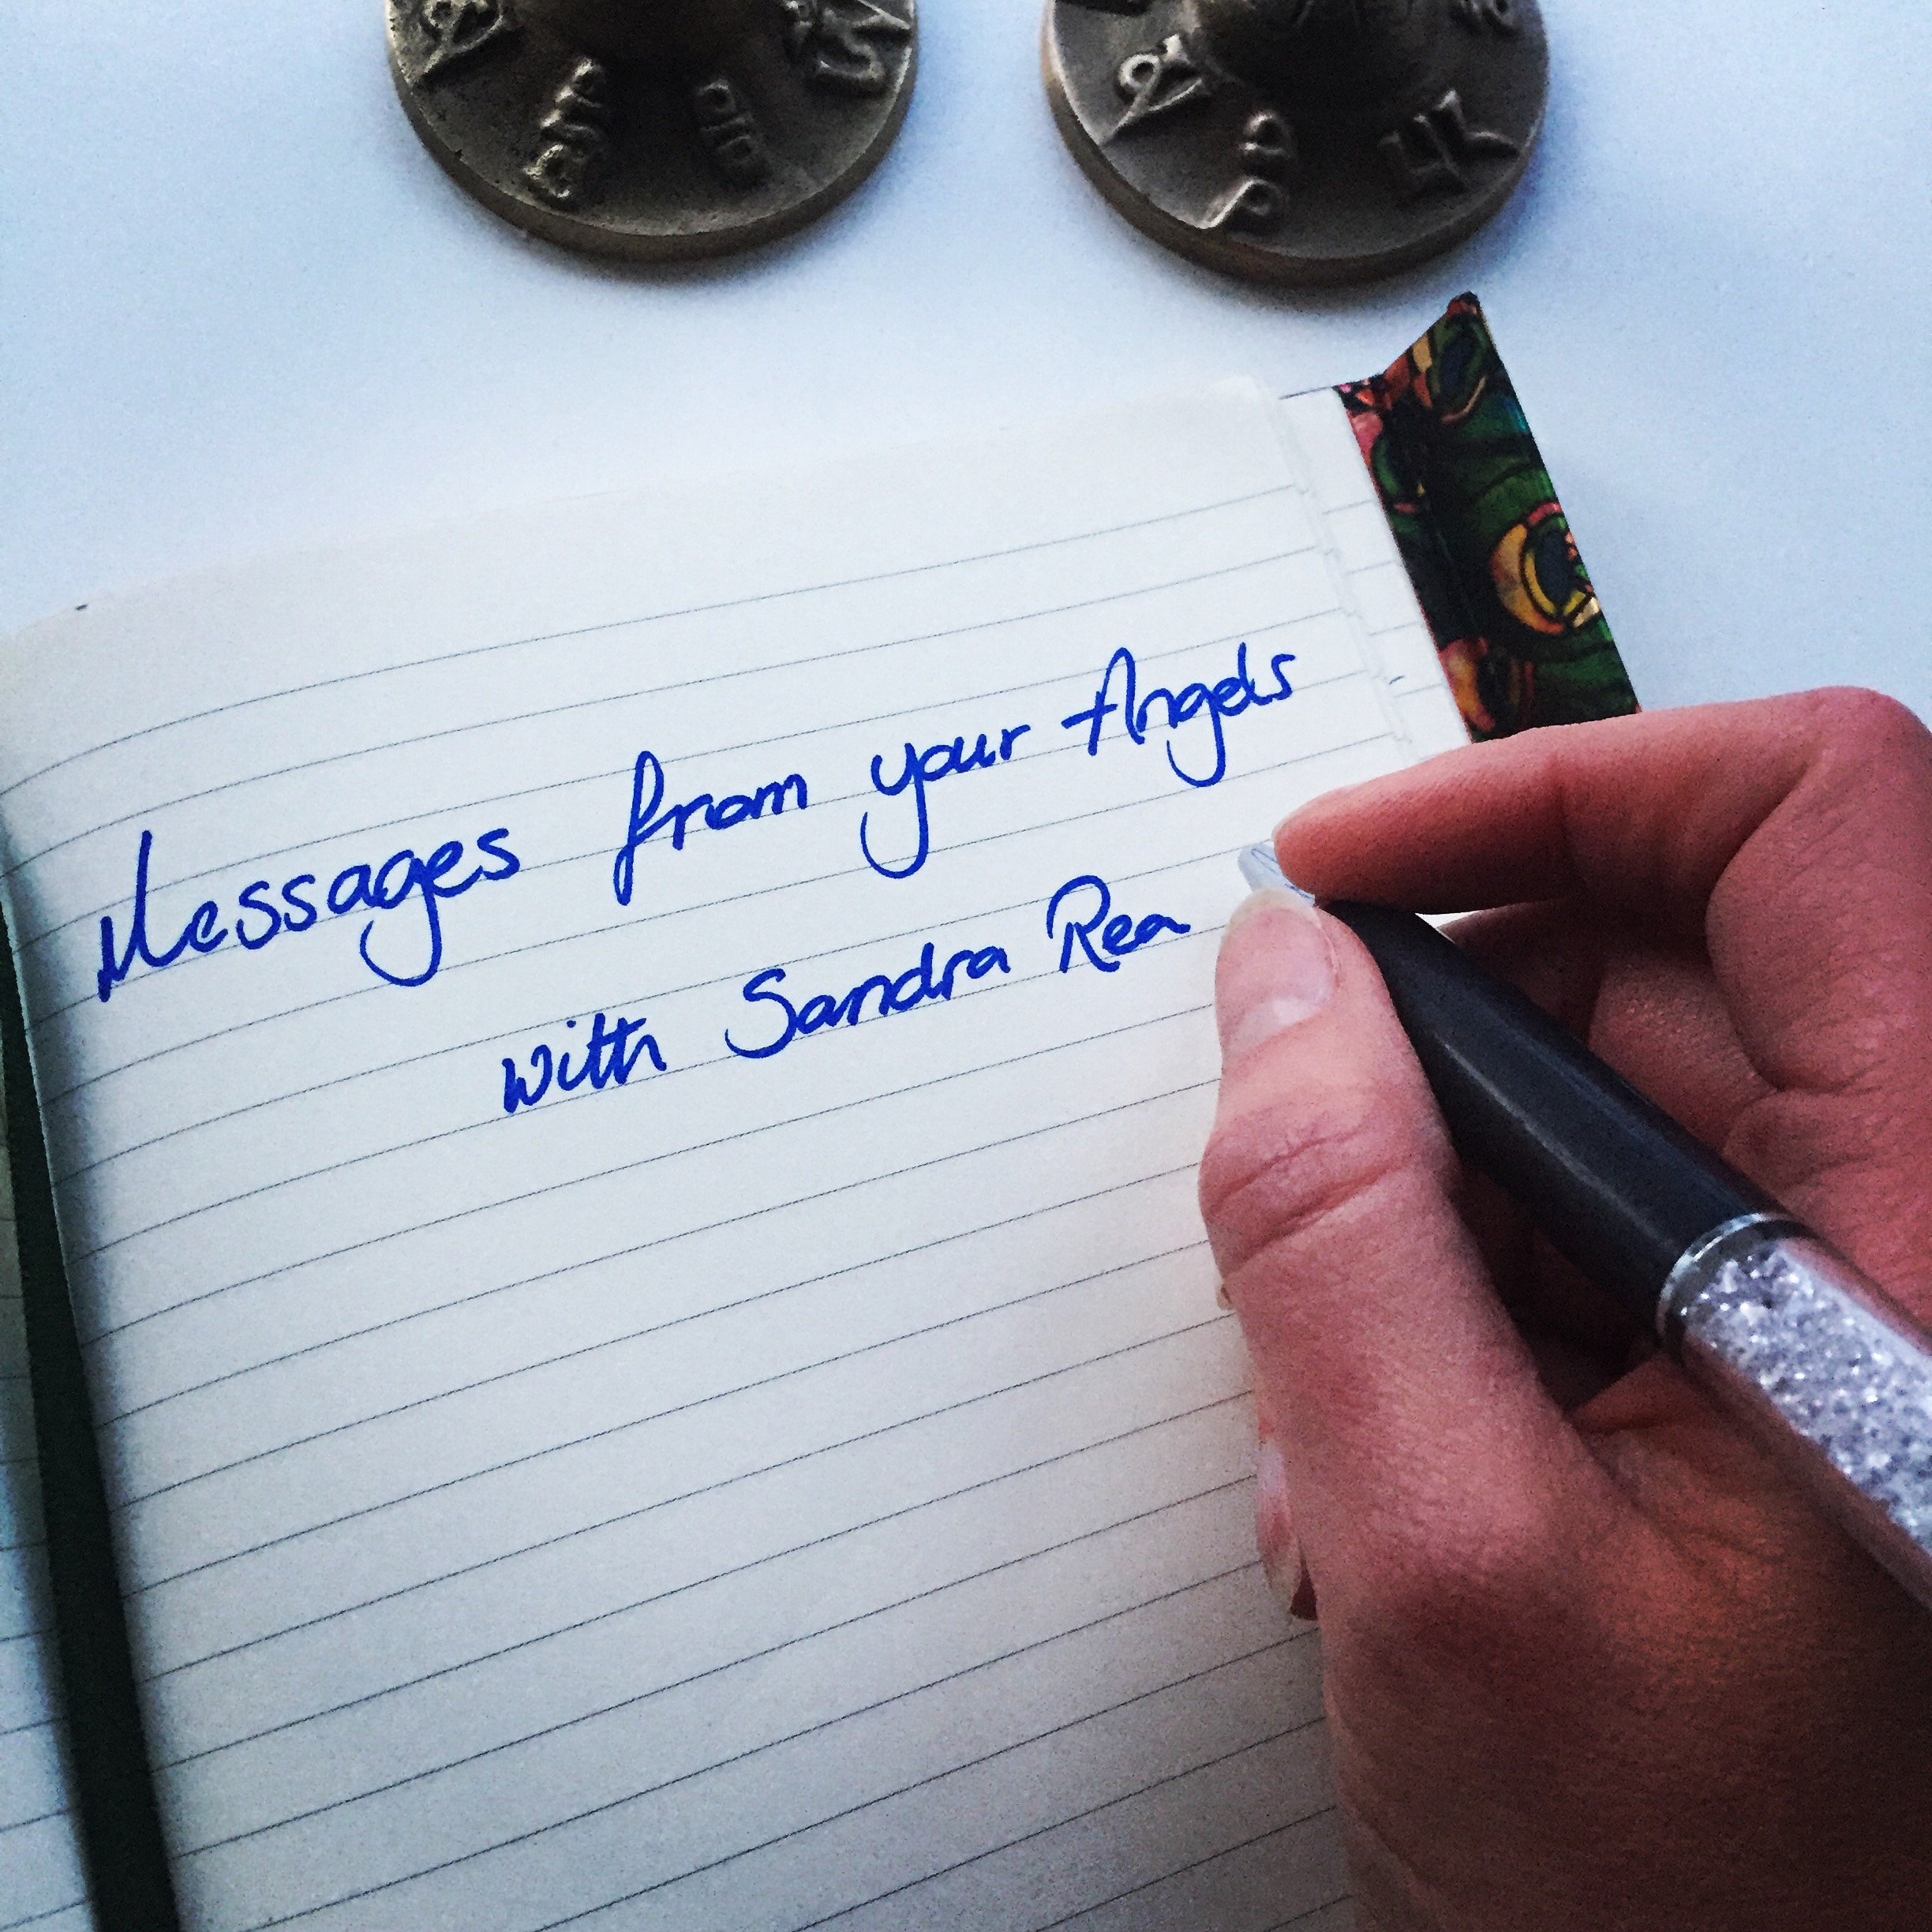 Messages from your Angels
with Sandra Rea